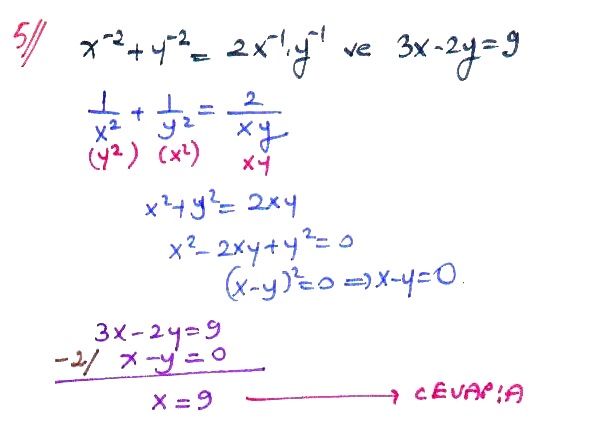 5// x⁻²+y⁻² = 2x⁻¹.y⁻¹ ve 3x-2y=9
1/x² + 1/y² = 2/xy
(y²) (x²) xy
x²+y²=2xy
x²-2xy+y²=0
(x-y)²=0 ⇒ x-y=0.
3x-2y=9
-2/ x-y=0
x=9 → CEVAP:A